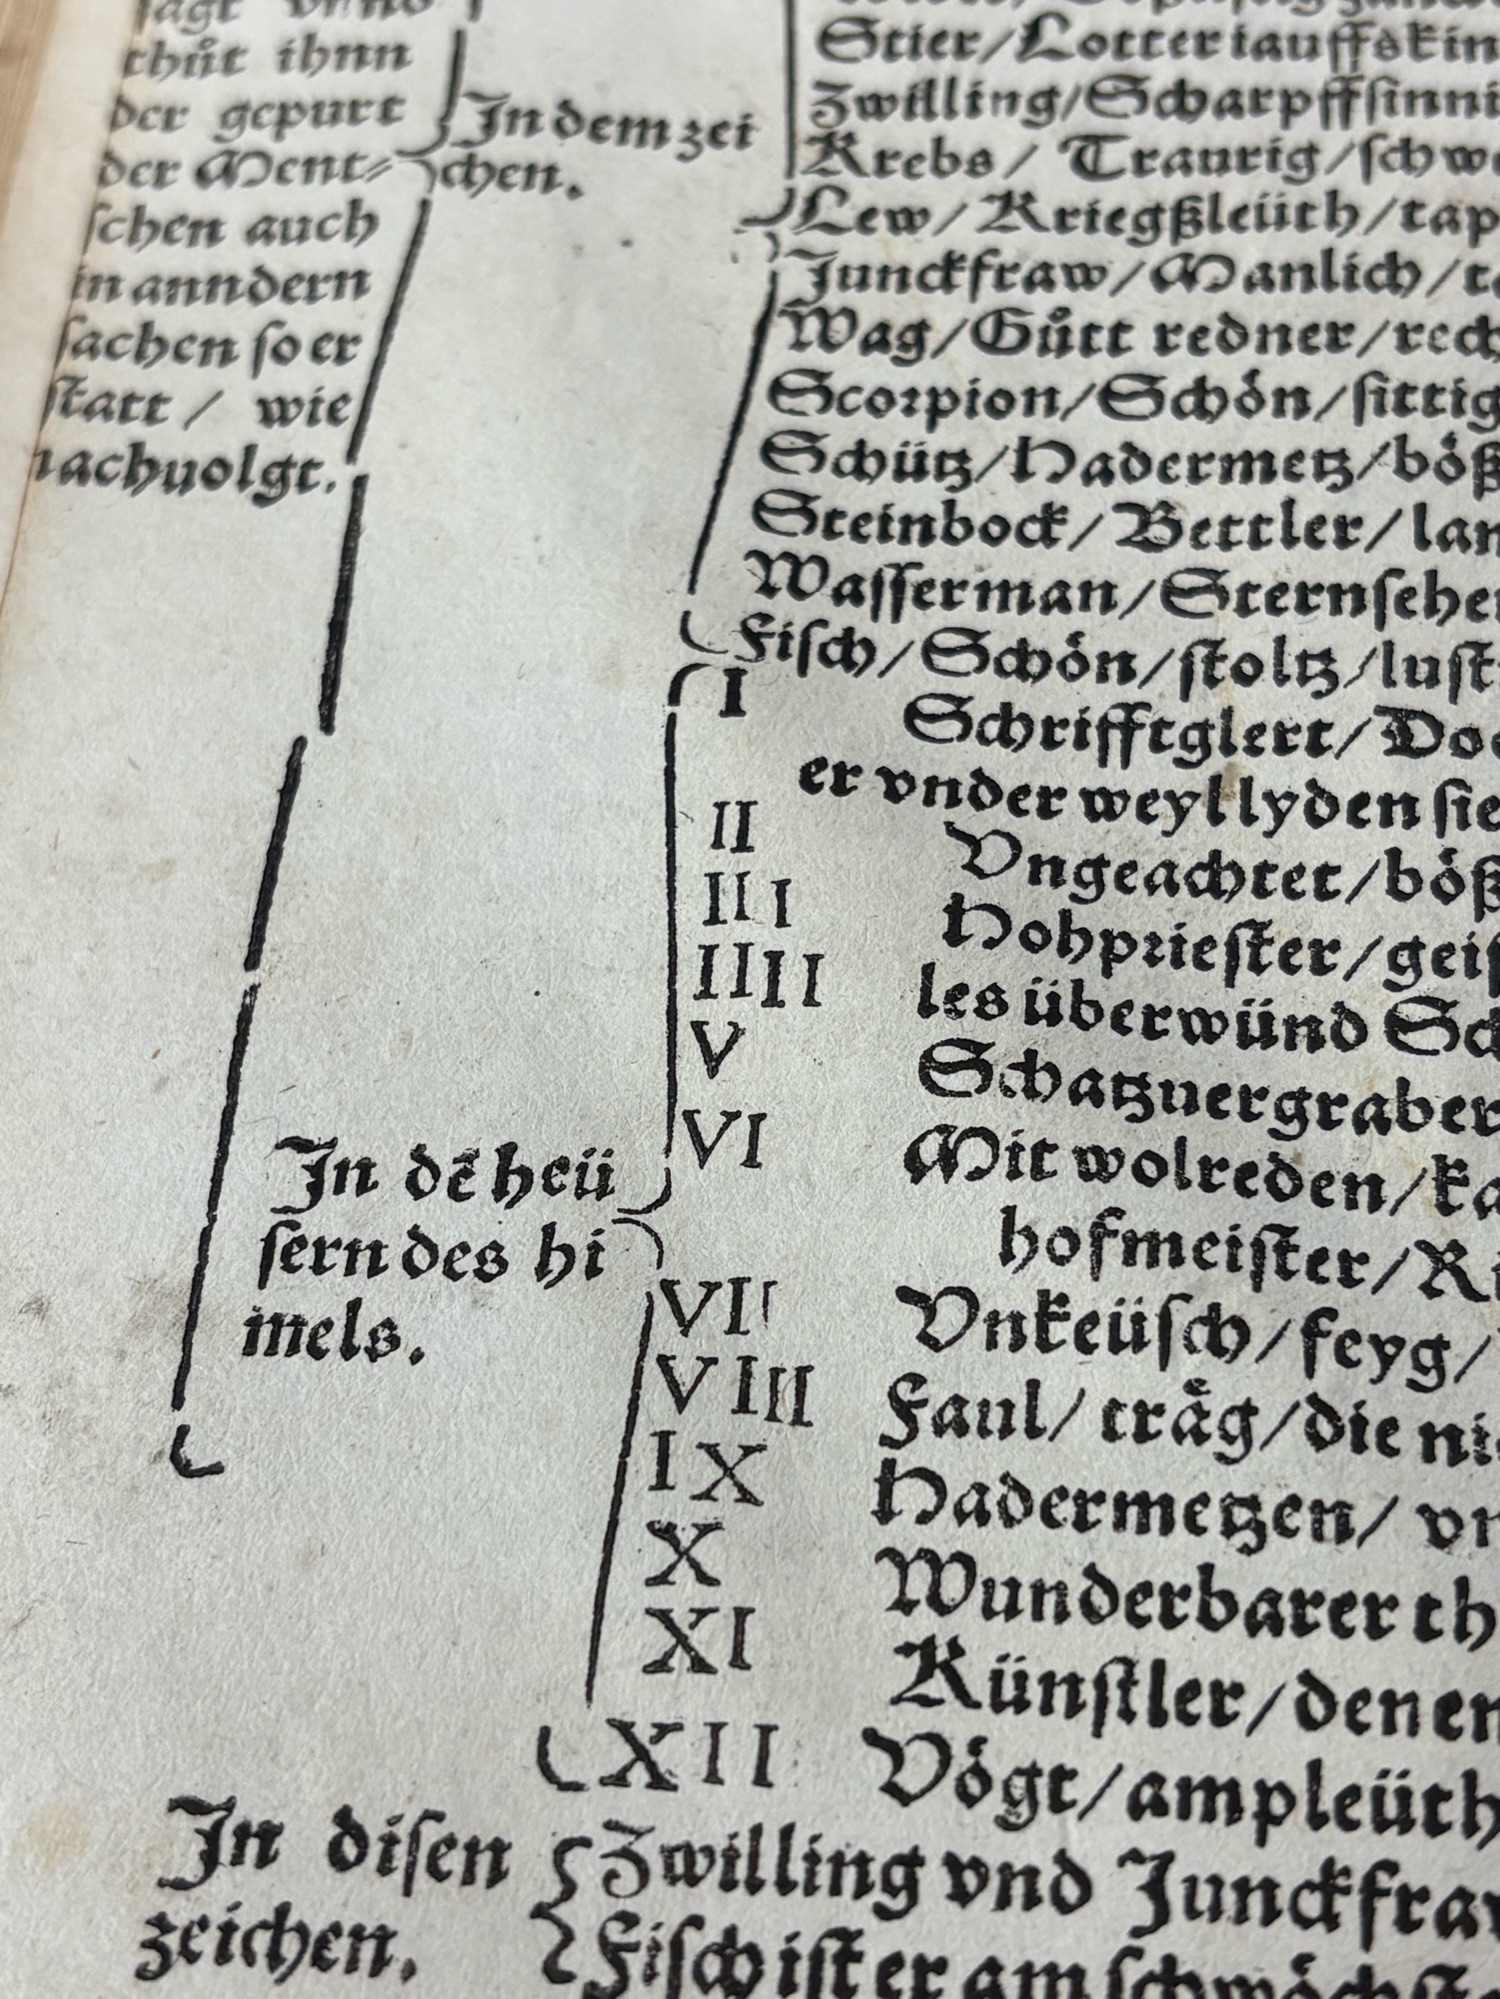 sagt vnnd
thůt ihnn
der gepurt
der Ment⸗
schen auch
in anndern
sachen so er
statt / wie
nachuolgt.
In dem zei
chen.
Stier/Lotteriauffskin
Zwilling/Scharpffsinni
Krebs/ Traurig/schwe
Lew/Kriegßleüth/tap
Junckfraw/Manlich/
Wag/Gůtt redner/rech
Scorpion/Schön/sittig
Schütz/Hadermetz/böß
Steinbock/Bettler/lan
Wasserman/Sternsehe
Fisch/Schön/stoltz/lust
In dẽ heü
sern des hi
mels.
I
Schrifftglert/Doc
er vnder weyl lyden sie
II
Vngeachtet/böß
III
Hohpriester/geis
IIII
les überwünd Sc
V
Schatzuergraber
VI
Mit wolreden/ka
hofmeister/Ri
VII
Vnkeüsch/feyg/
VIII
Faul/ träg/die ni
IX
Hadermetzen/ vn
X
Wunderbarer th
XI
Künstler/denen
XII
Vögt/ampleüth
In disen
zeichen.
Zwilling vnd Junckfraw
Fisch ist er am schwöchste